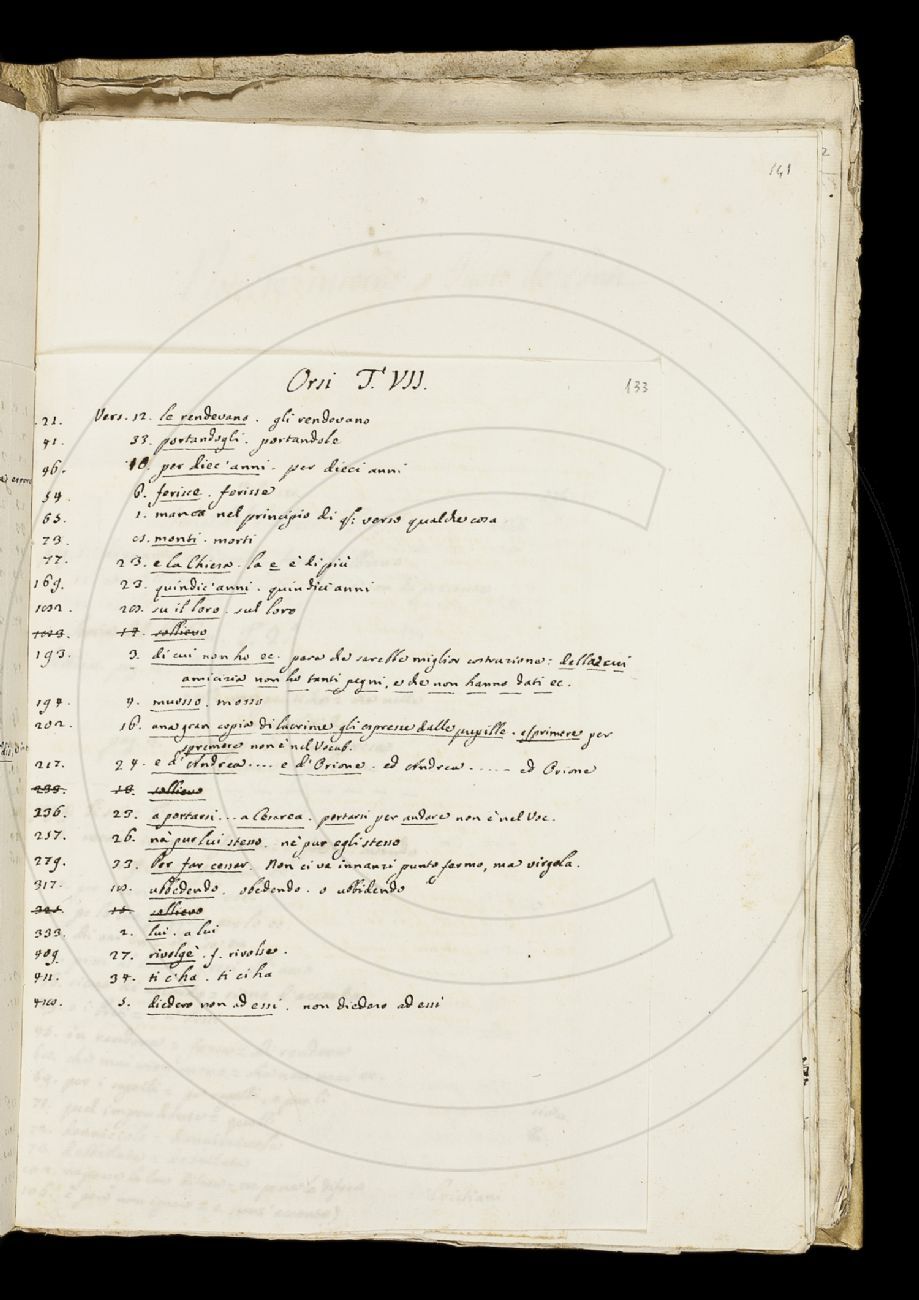 141
Orsi T. VII.
133
21. Vers. 12. le rendevano. gli rendevano
41. 33. portandogli. portandole
46. 10. per diec' anni. per dieci anni
54. 6. ferisce. ferisse
65. 1. manca nel principio di qſ: verso qualche cosa
73. monti. morti
77. 23. e la Chiesa. la e è di più
169. 23. quindic' anni. quindici anni
su il loro. sul loro
sollievo
193. 3. di cui non ho ec. pare che sarebbe miglior costruzione: della cui
amicizia non ho tanti pegni, e che non hanno dati ec.
194. 4. muosso. mosso
202. 16. una gran copia di lacrime gli espresse dalle pupille. esprimere per
spremere non è nel Vocab.
217. 24. e d' Andrea.... e d' Orione. ed Andrea..... ed Orione
18. sollievo
236. 23. a portarsi... a Cesarea. portarsi per andare non è nel Voc.
257. 26. nè pur lui stesso. nè pur egli stesso
279. 33. Per far cessar. Non ci va innanzi punto fermo, ma virgola.
317. 10. ubbedendo. obedendo. o ubbidendo
sollievo
333. 2. lui. a lui
409 27. rivolge. f. rivolse.
411. 34. ti c'ha. ti ci ha
5. diedero non ad essi. non diedero ad essi